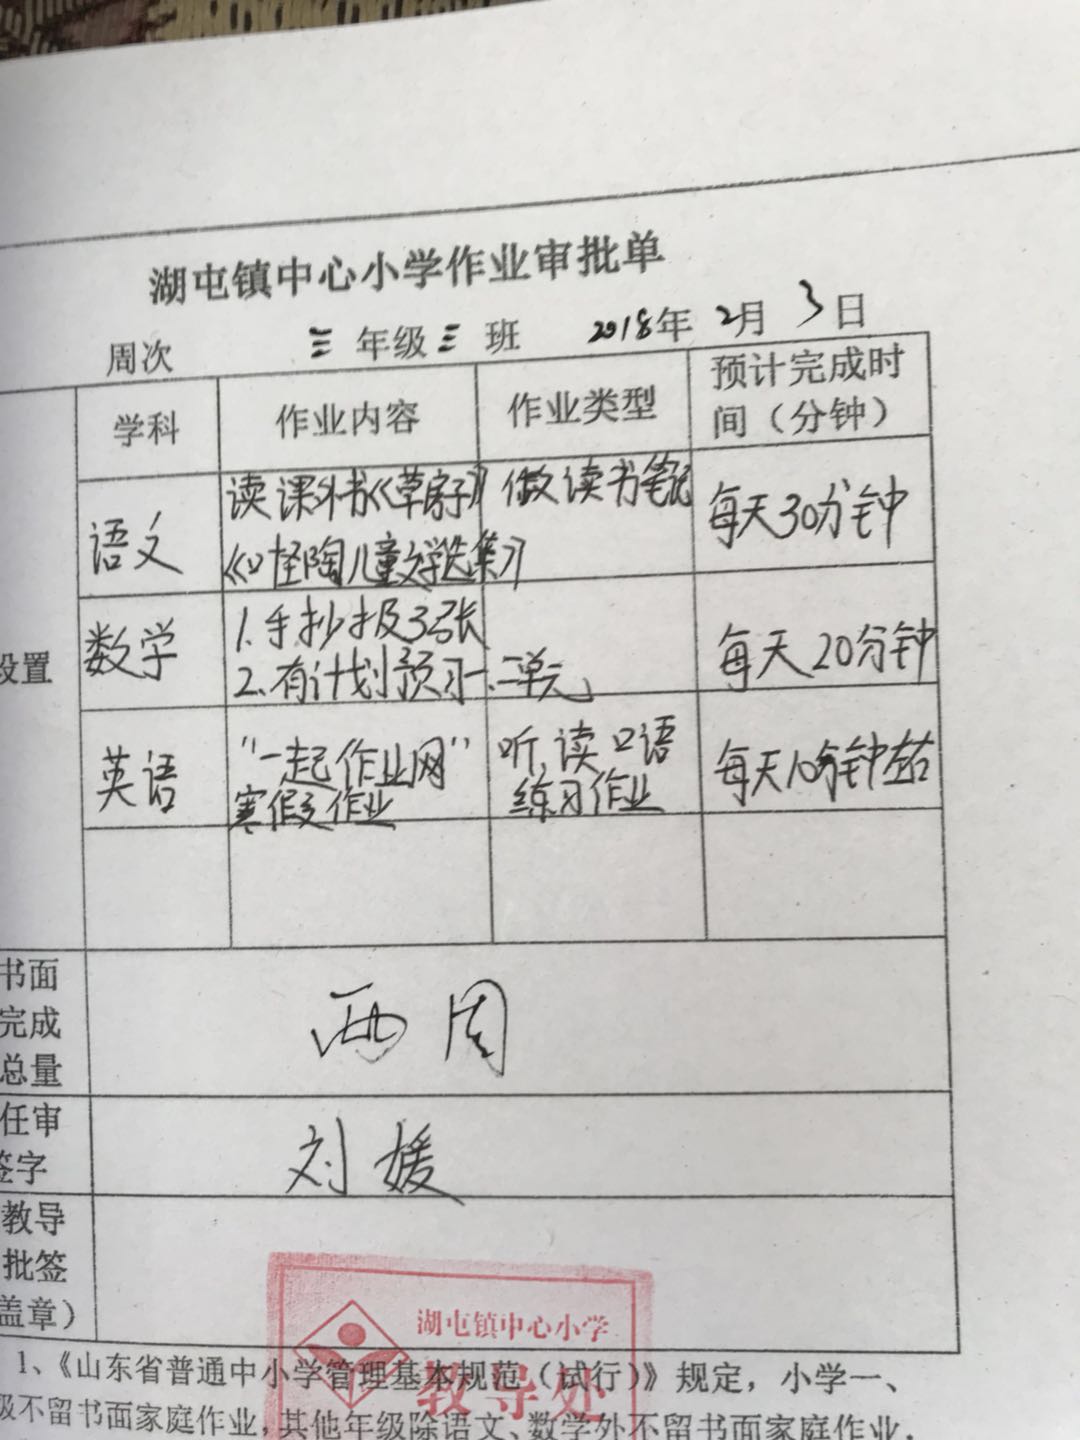 湖屯镇中心小学作业审批单
周次 三 年级 三 班 2018年 2月 3日
学科 作业内容 作业类型 预计完成时
间（分钟）
设置
语文 读课外书《草房子》 做读书笔记 每天30分钟
儿童文学选集》
数学 1.手抄报3张 每天20分钟
2.有计划预习一、二单元
英语 “一起作业网” 听、读口语 每天10分钟左右
寒假作业 练习作业
书面
完成 两周
总量
任审 刘媛
签字
教导
批签
盖章）
湖屯镇中心小学
教导处
1、《山东省普通中小学管理基本规范（试行）》规定，小学一、
级不留书面家庭作业，其他年级除语文、数学外不留书面家庭作业，